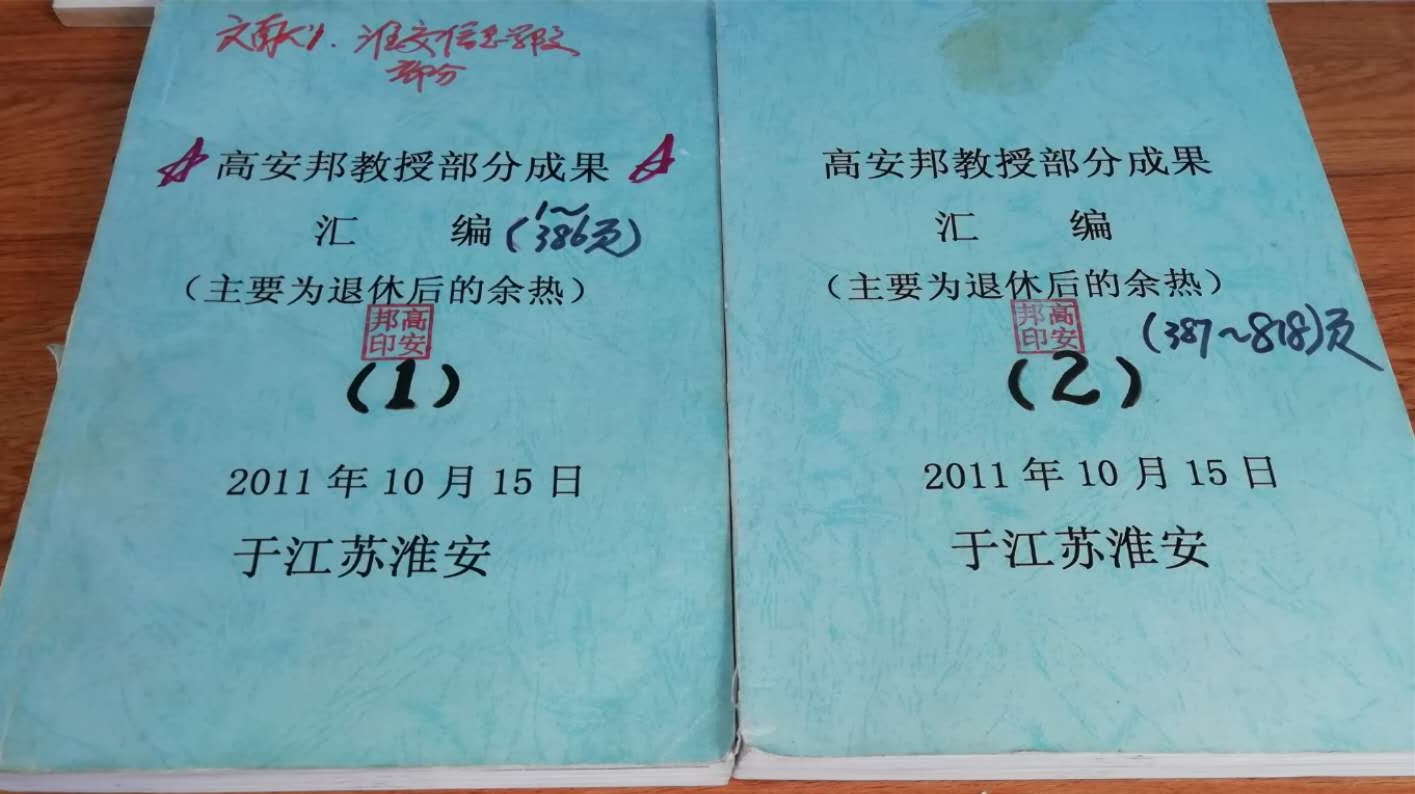 文献1.淮安信息学院
部分
高安邦教授部分成果
汇 编(1～386页)
（主要为退休后的余热）
高安邦印
(1)
2011年10月15日
于江苏淮安
高安邦教授部分成果
汇 编
（主要为退休后的余热）
高安邦印
(387～818)页
(2)
2011年10月15日
于江苏淮安